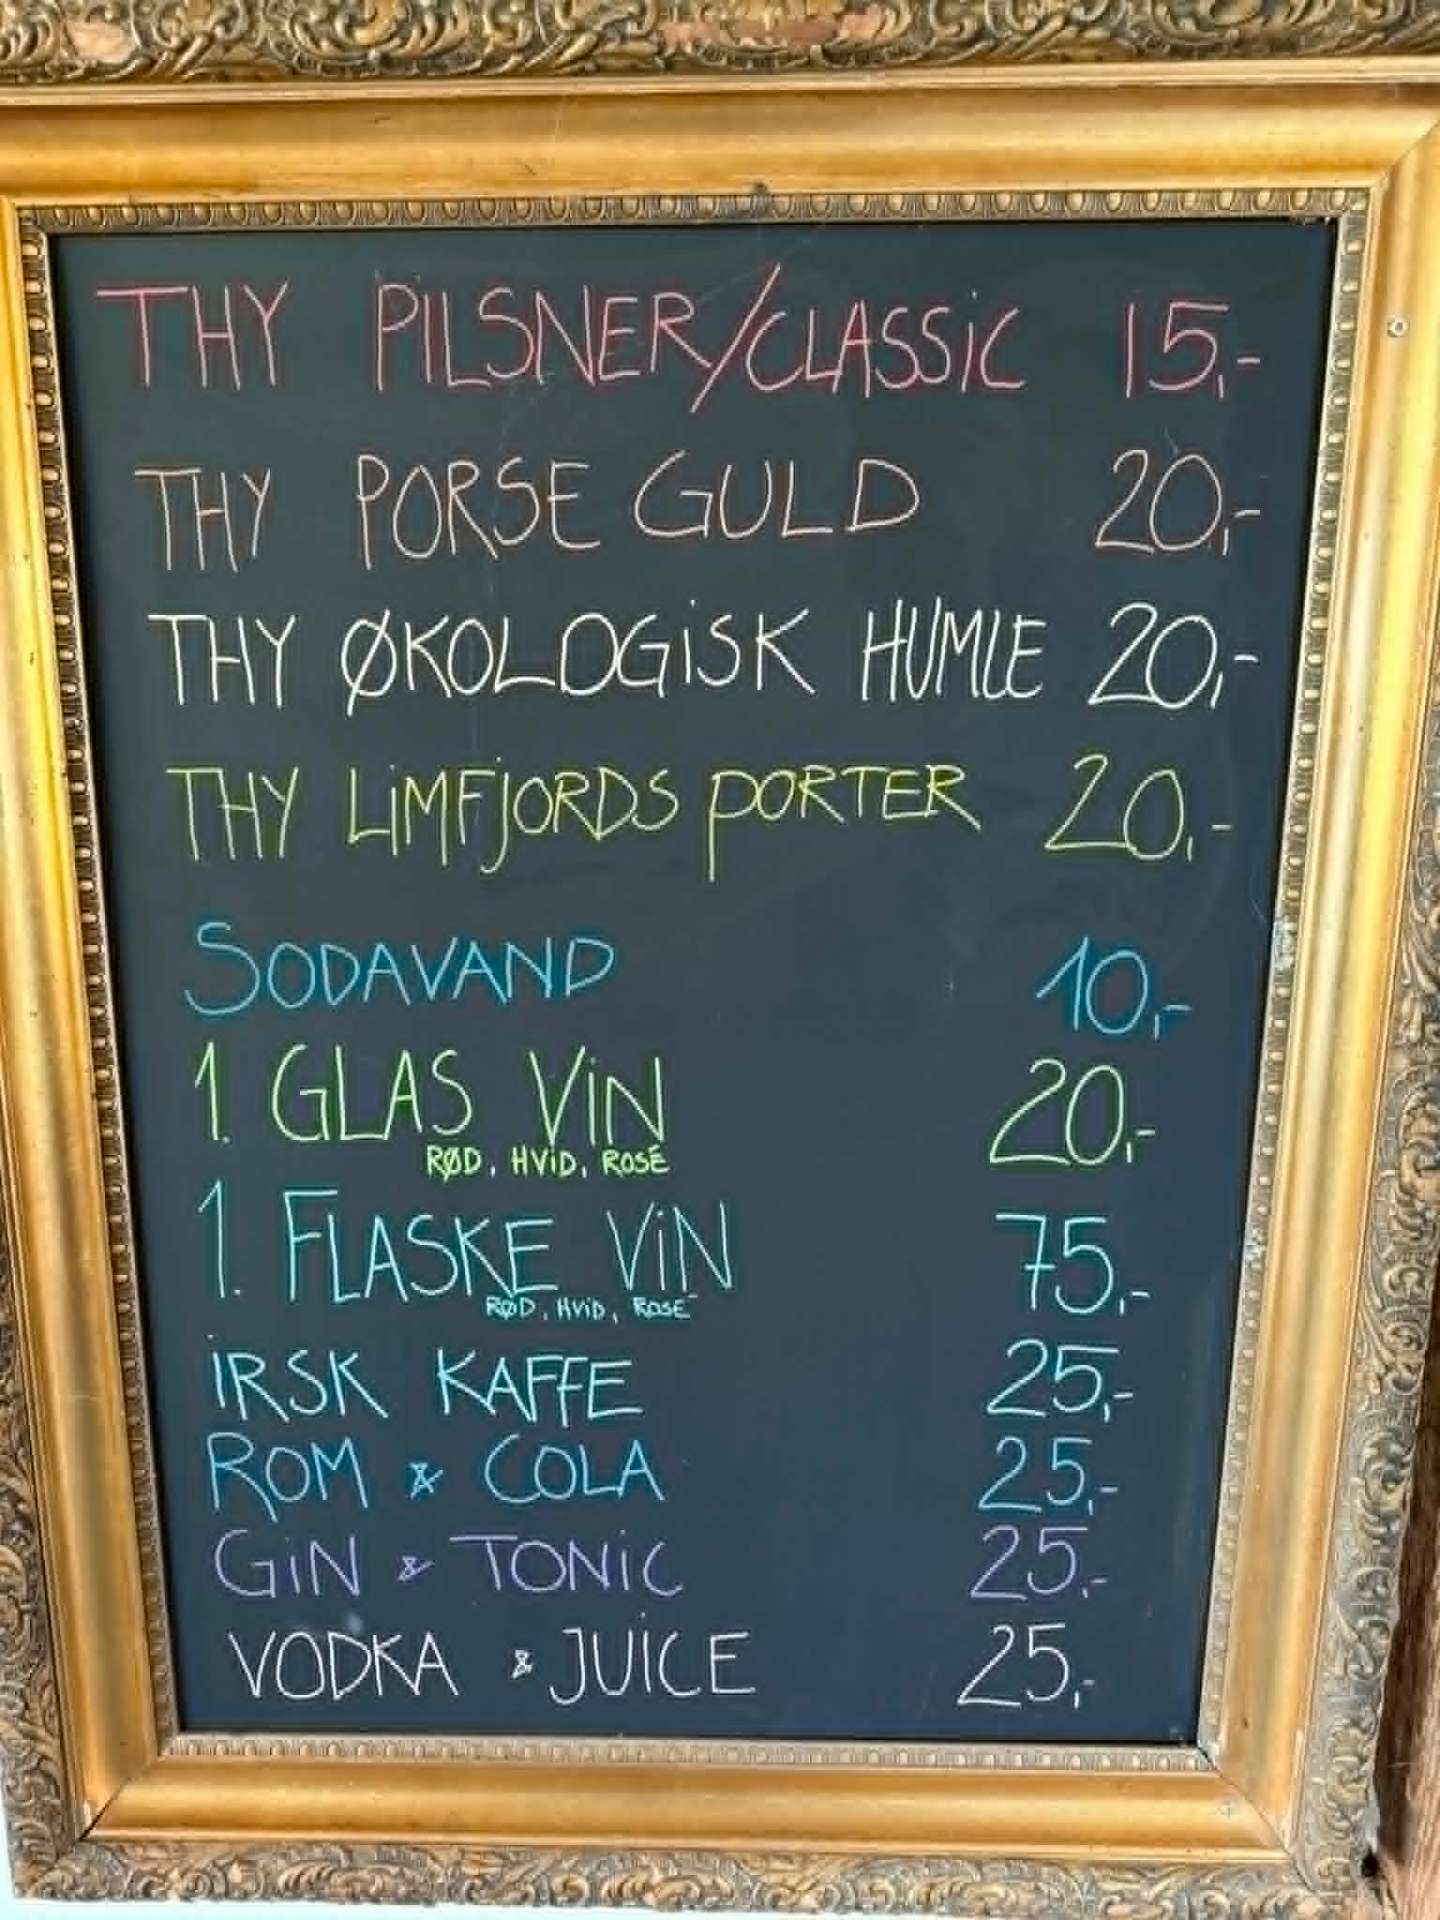 THY PILSNER/CLASSIC 15,-
THY PORSE GULD 20,-
THY ØKOLOGISK HUMLE 20,-
THY LIMFJORDS PORTER 20,-
SODAVAND 10,-
1. GLAS VIN 20,-
RØD, HVID, ROSÉ
1. FLASKE VIN 75,-
RØD, HVID, ROSÉ
IRSK KAFFE 25,-
ROM & COLA 25,-
GIN & TONIC 25,-
VODKA & JUICE 25,-